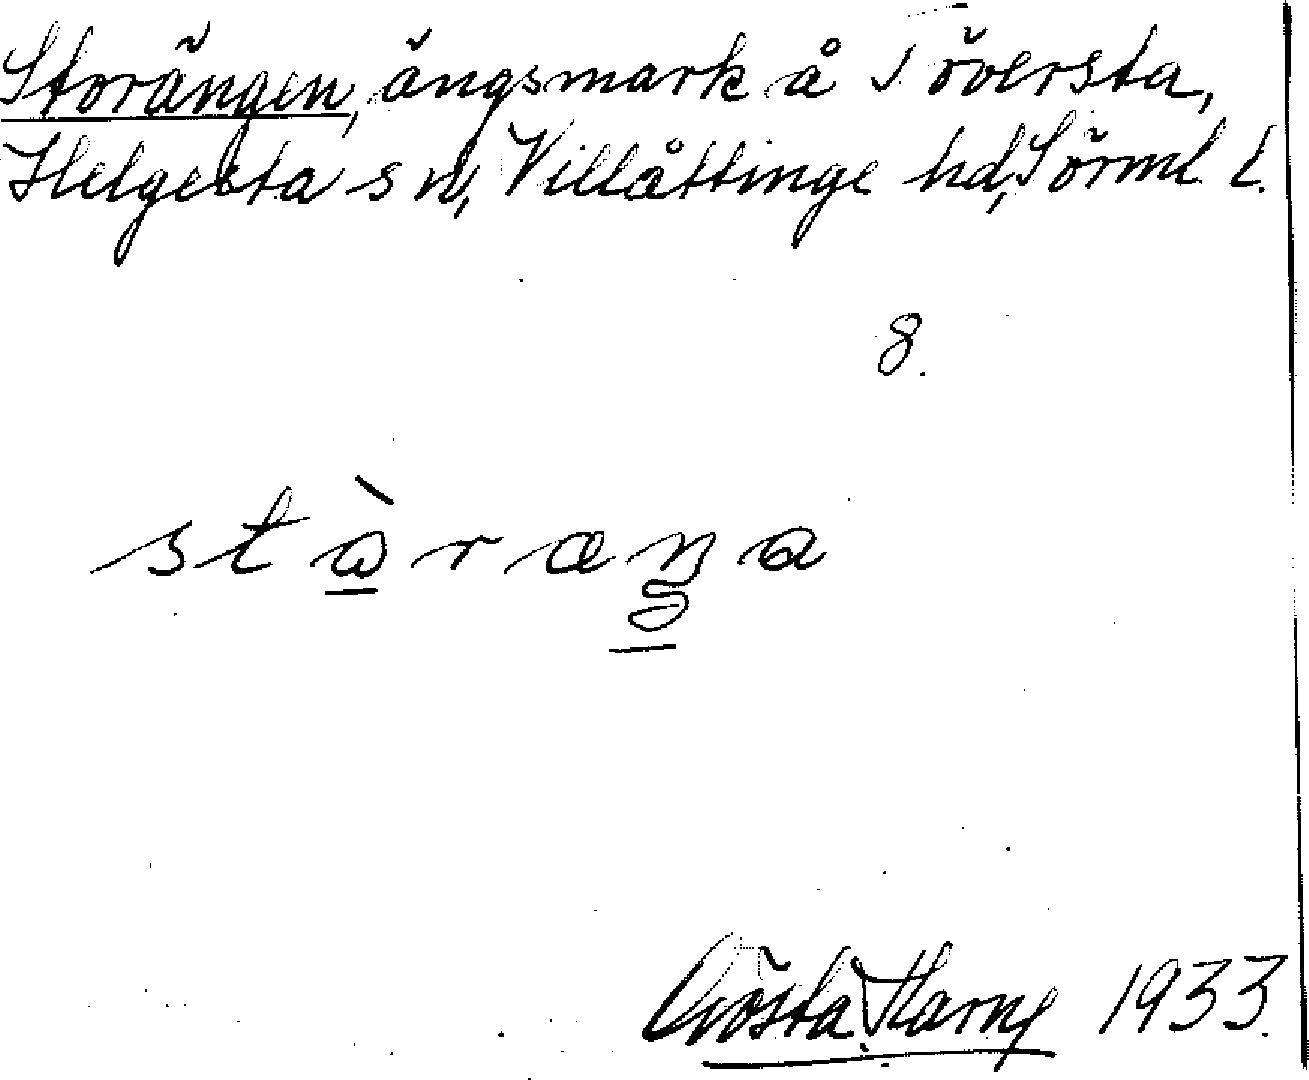 Storängen, ängsmark å Töversta,
Helgesta sn, Villåttinge hd, Sörml l.
8.
stàræŋa
Gösta Harng 1933.